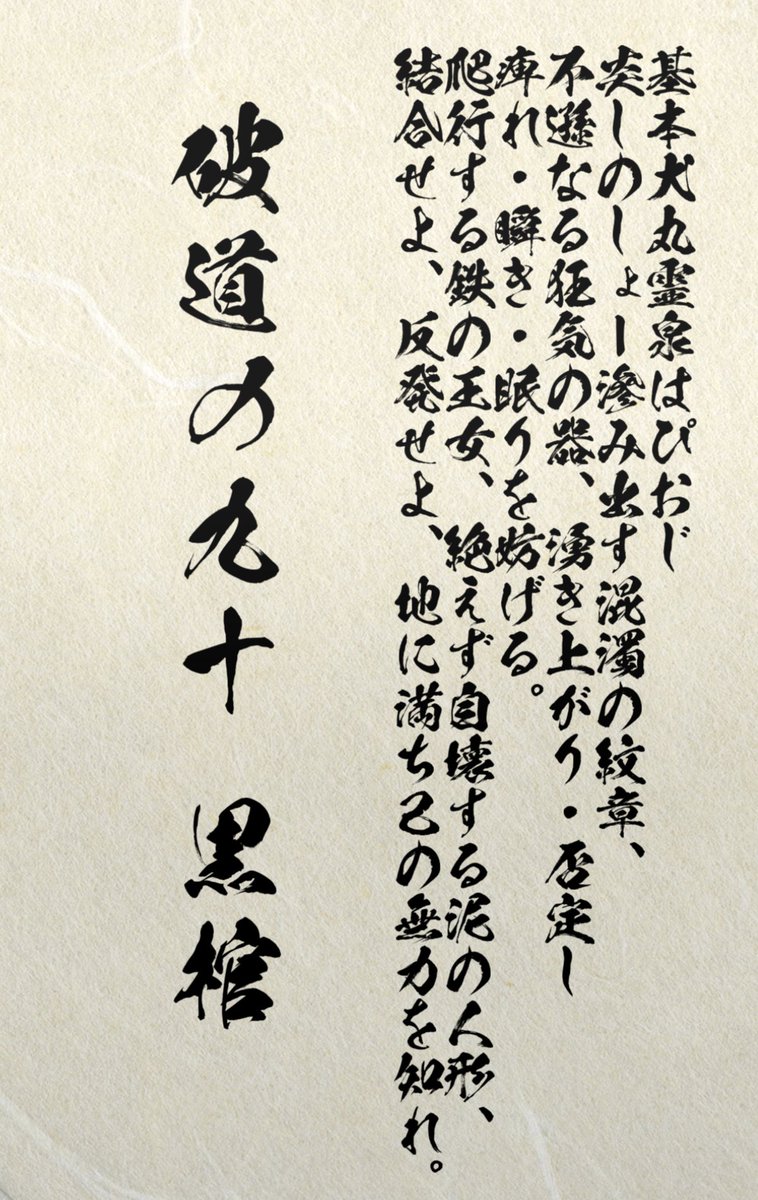 基本犬丸霊泉はぴおじ
炎しのしょー滲み出す混濁の紋章、
不遜なる狂気の器、湧き上がり・否定し
痺れ・瞬き・眠りを妨げる。
爬行する鉄の王女、絶えず自壊する泥の人形、
結合せよ、反発せよ、地に満ち己の無力を知れ。
破道の九十 黒棺